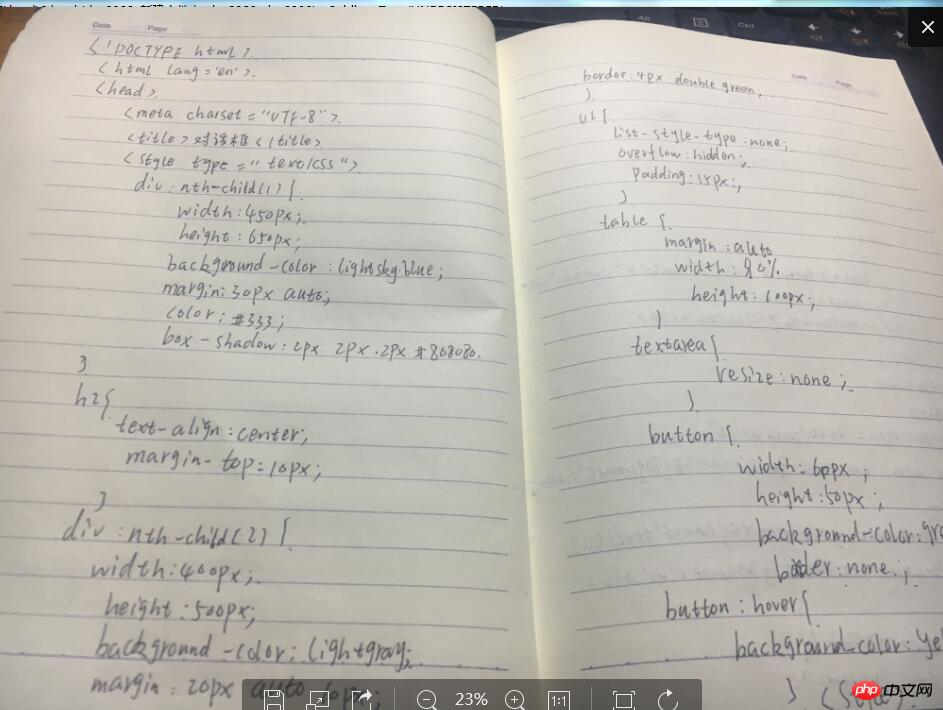 Date. Page.
<!DOCTYPE html>.
<html lang='en'>.
<head>.
<meta charset="UTF-8">.
<title>对话框</title>
<style type="text/css">
div:nth-child(1){
width:450px;
height:650px;
background-color:lightskyblue;
margin:30px auto;
color:#333;
box-shadow:2px 2px.2px #808080.
}
h2{
text-align:center;
margin-top:10px;
}
div:nth-child(2){
width:400px;
height:500px;
background-color:lightgray;
margin:20px auto
Date. Page.
border:4px double green;
}.
ul{
list-style-type:none;
overflow:hidden;
padding:15px;
}
table{
margin:auto
width:80%.
height:100px;
}
textarea{
resize:none;
}.
button{
width:60px;
height:50px;
background-color:gr
border:none.;
button:hover{
background-color:ye
}
23%
1:1
php中文网